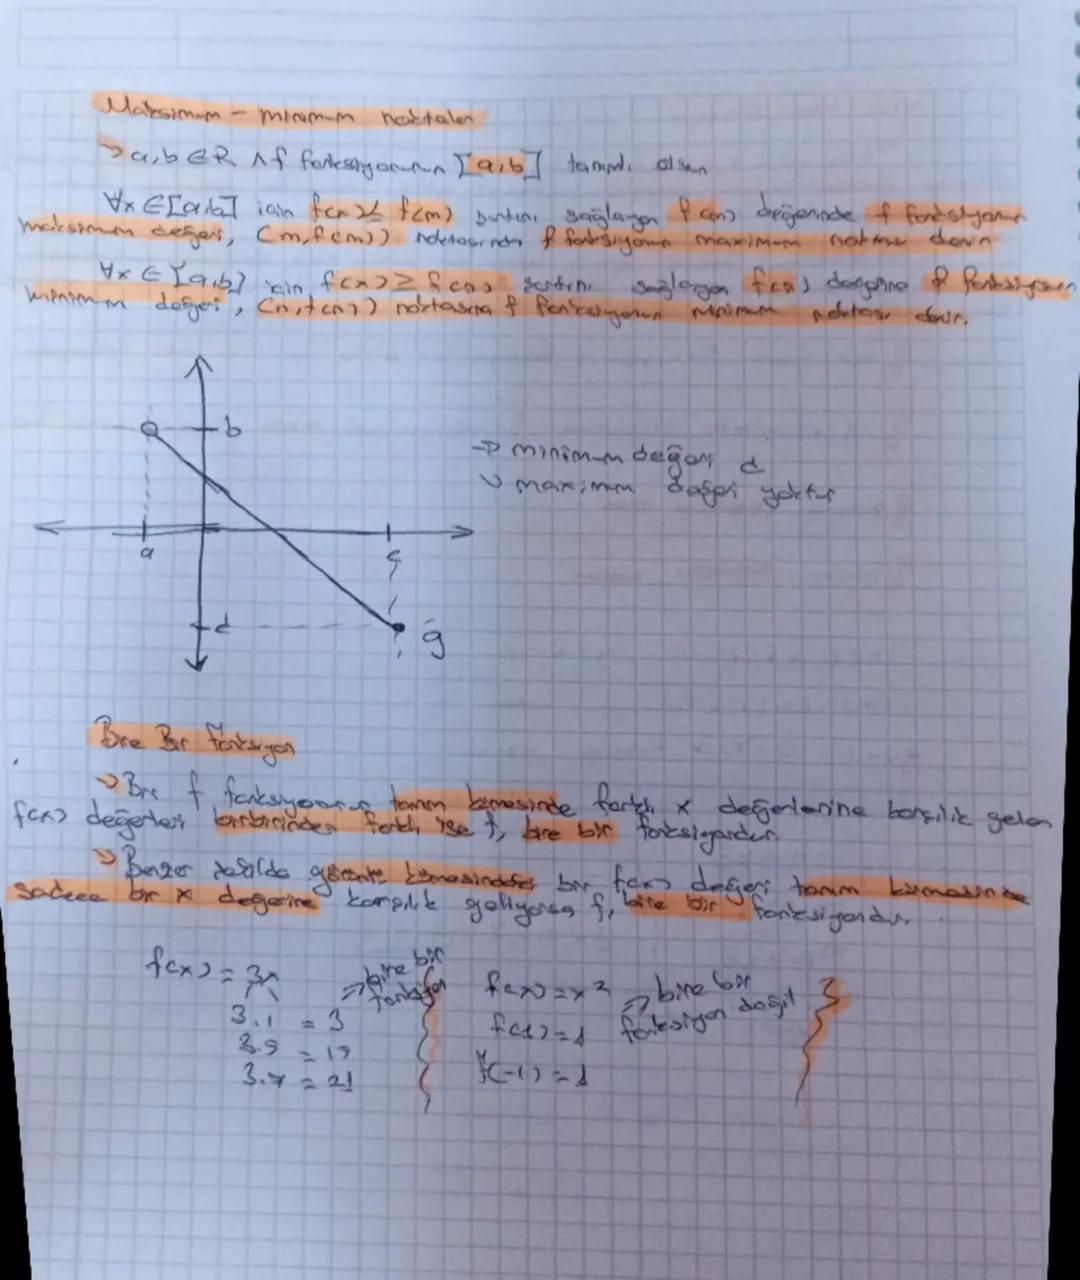 Maksimum - minimum noktaları
→ a,b ∈ R ∧ f fonksiyonunun [a,b] tanımlı olsun
∀x ∈ [a,b] için f(x) ≤ f(m) şartını sağlayan f(m) değerinde f fonksiyonun
maksimum değeri, (m, f(m)) noktasında f fonksiyonun maximum noktası denir
∀x ∈ [a,b] için f(x) ≥ f(n) şartını sağlayan f(n) değerine f fonksiyonun
minimum değeri, (n, f(n)) noktasına f fonksiyonun minimum noktası denir.
b
→ minimum değeri d
→ maximum değeri yoktur
a
c
d
g
Bire Bir fonksiyon
→ Bir f fonksiyonunun tanım kümesinde farklı x değerlerine karşılık gelen
f(x) değerleri birbirinden farklı ise f, bire bir fonksiyondur.
→ Benzer şekilde görüntü kümesindeki bir f(x) değeri tanım kümesinde
sadece bir x değerine karşılık geliyorsa f, bire bir fonksiyondur.
f(x) = 3x ⇒ bire bir fonksiyon
3.1 = 3
3.7 = 21
f(x) = x² ⇒ bire bir fonksiyon değil
f(1) = 1
f(-1) = 1